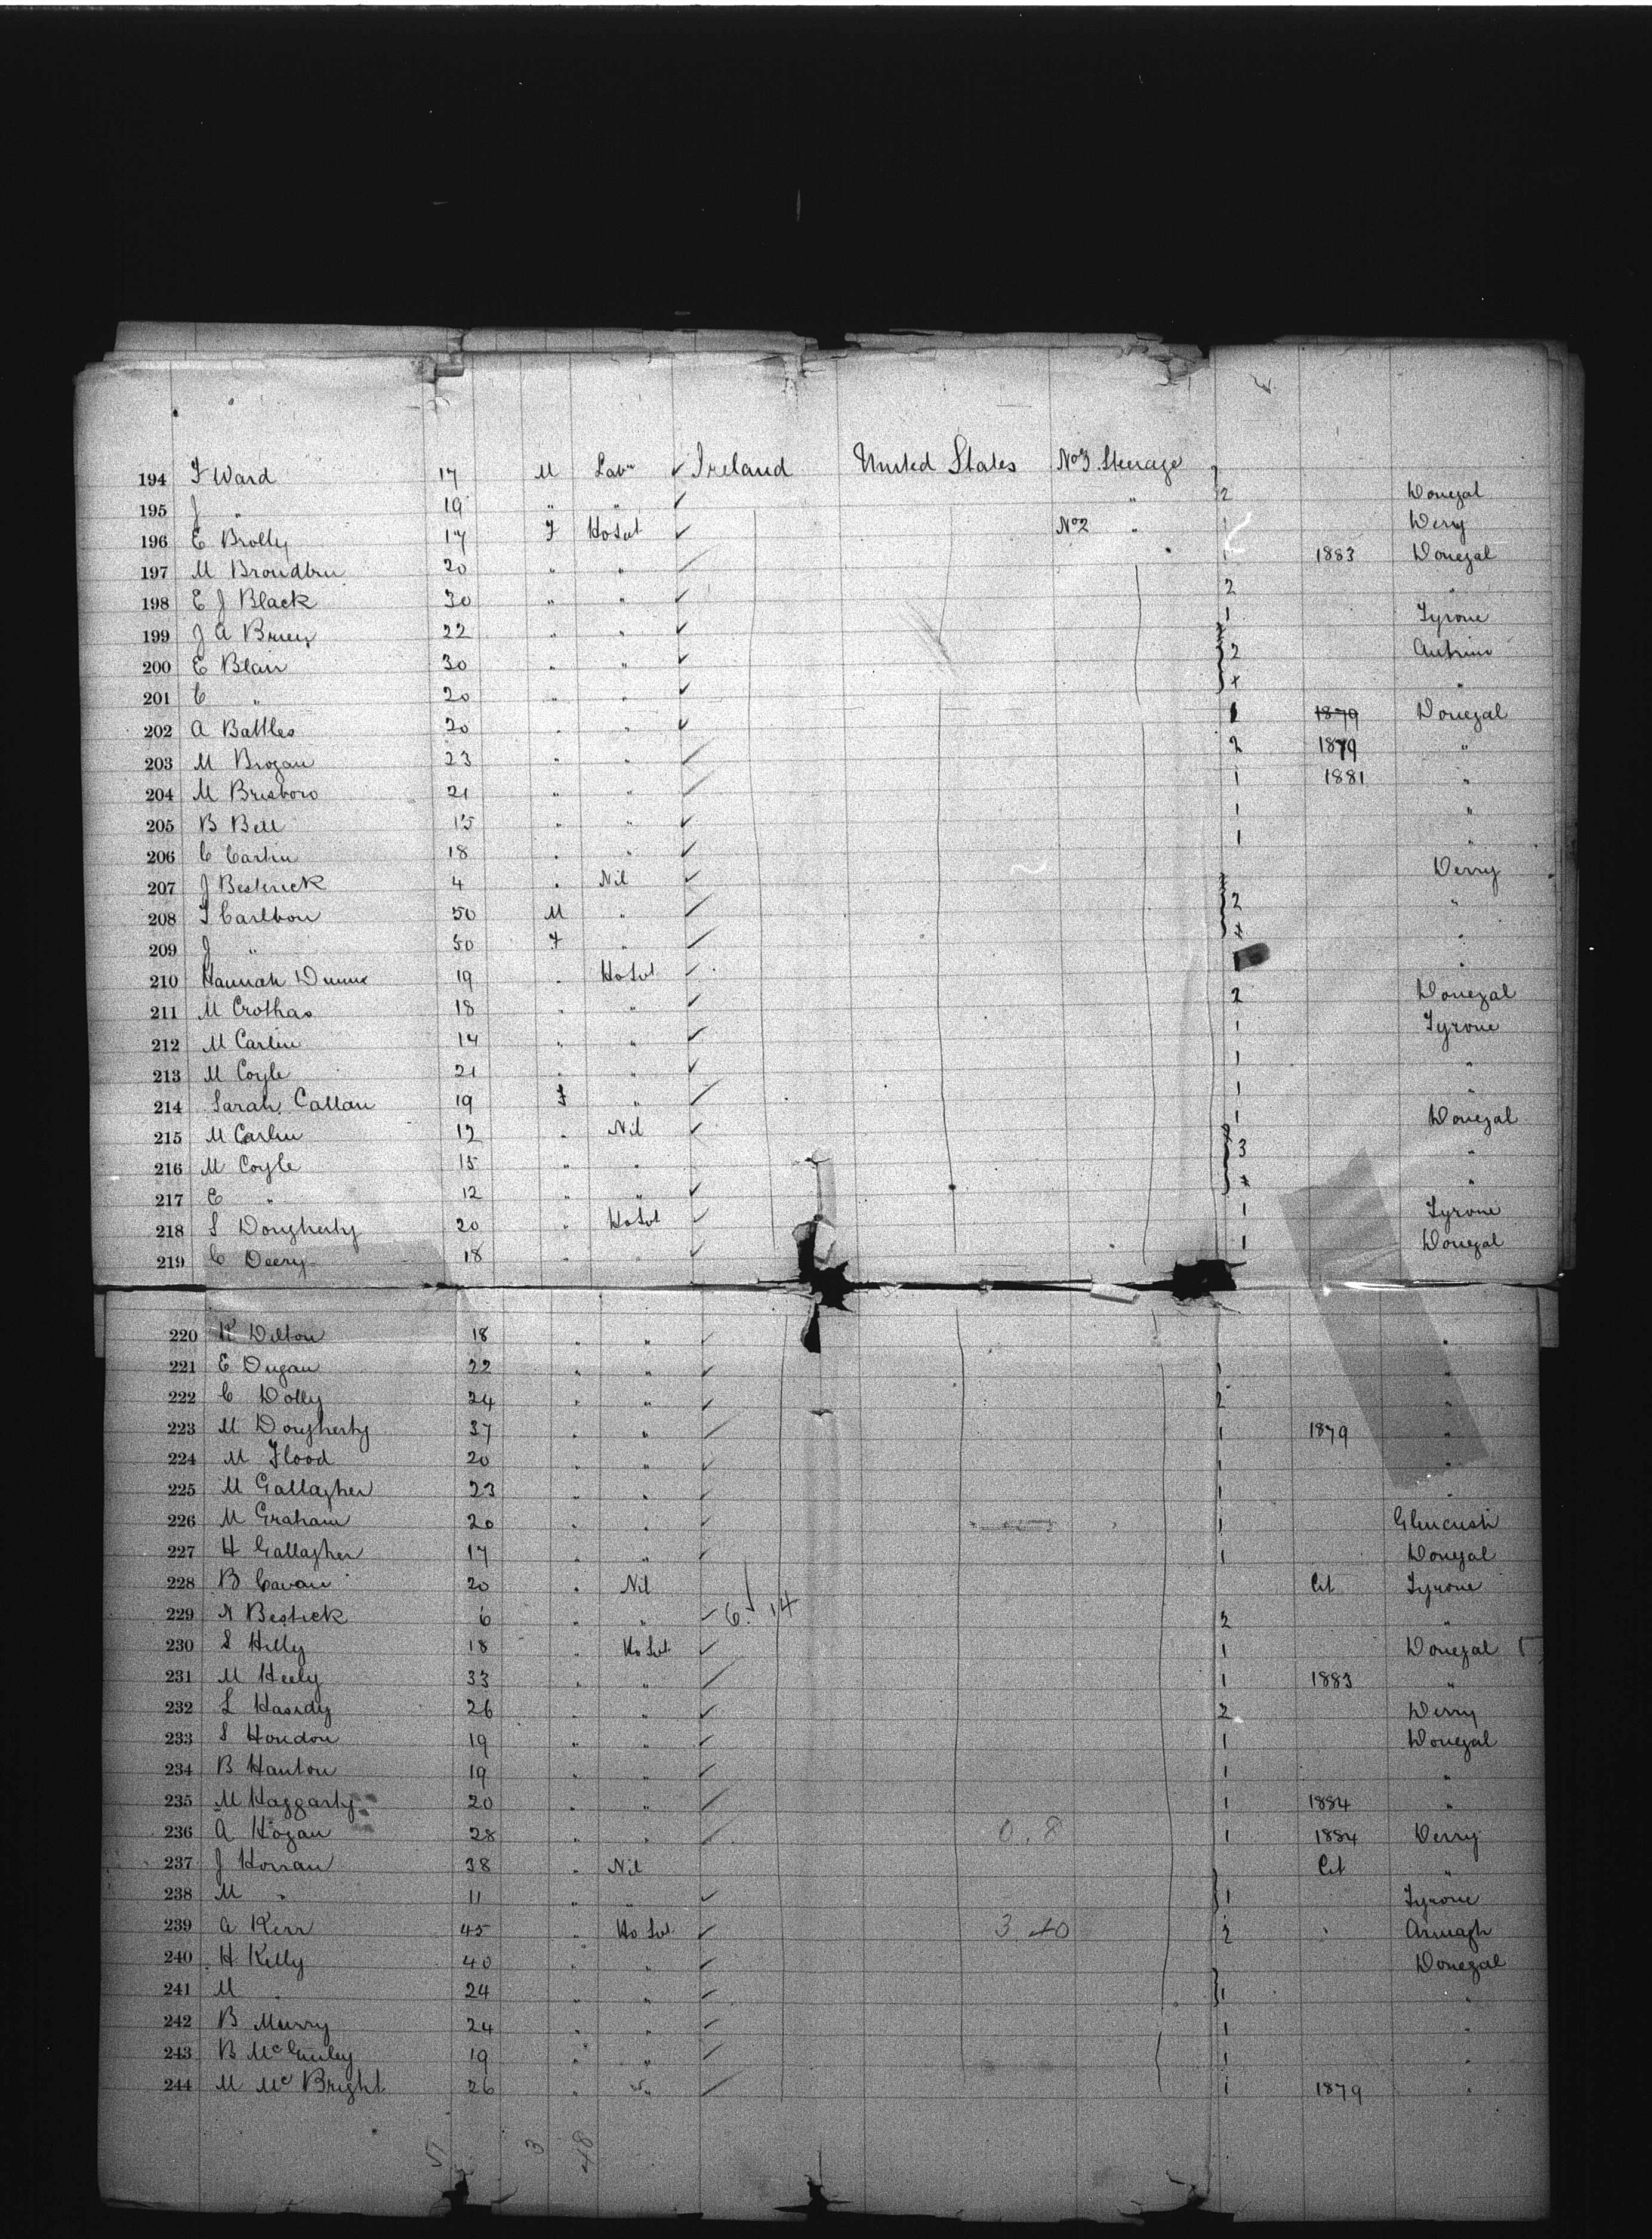 194 F Ward 17 M Labr ✓ Ireland United States No 3 Steerage
195 J " 19 " " ✓ " 2 Donegal
196 E Brolly 17 F Ho Svt ✓ No 2 " 1 Derry
197 M 20 " " ✓ 1 1883 Donegal
198 E J Black 30 " " ✓ 2 "
199 J A 22 " " ✓ 1 Tyrone
200 E Blair 30 " " ✓ 2 Antrim
201 C " 20 " " ✓ x "
202 A Battles 20 " " ✓ 1 1879 Donegal
203 M Brogan 23 " " ✓ 2 1879 "
204 M Brisboro 21 " " ✓ 1 1881 "
205 B Bell 15 " " ✓ 1 "
206 C Carlin 18 " " ✓ 1 "
207 J 4 " Nil ✓ Derry
208 50 M " ✓ 2 "
209 J " 50 F " ✓ x "
210 Hannah Dunne 19 " Ho Svt ✓ 1 "
211 M Crothas 18 " " ✓ 2 Donegal
212 M Carlin 14 " " ✓ 1 Tyrone
213 M Coyle 21 " " ✓ 1 "
214 Sarah Callan 19 F " ✓ 1 "
215 M Carlin 12 " Nil ✓ 1 Donegal
216 M Coyle 15 " " 3 "
217 E " 12 " " ✓ x "
218 S Dougherty 20 " Ho Svt ✓ 1 Tyrone
219 C Deery 18 " " ✓ 1 Donegal
220 K Dilton 18 " " ✓ "
221 E Dugan 22 " " ✓ 1 "
222 C Dolly 24 " " ✓ 2 "
223 M Dougherty 37 " " ✓ 1 1879 "
224 M Flood 20 " " ✓ 1 "
225 M Gallagher 23 " " ✓ 1 "
226 M Graham 20 " " ✓ 1
227 H Gallagher 17 " " ✓ 1 Donegal
228 B Cavan 20 " Nil Cit Tyrone
229 N Bestick 6 " " ✓ 6 14 2 "
230 S Hilly 18 " Ho Svt ✓ 1 Donegal
231 M Heely 33 " " ✓ 1 1883 "
232 L Hasidy 26 " " ✓ 2 Derry
233 S Houdon 19 " " ✓ 1 Donegal
234 B Hanlon 19 " " ✓ 1 "
235 M Haggarty 20 " " ✓ 1 1884 "
236 A Hogan 28 " " ✓ 0.8 1 1884 Derry
237 J Horran 38 " Nil Cit "
238 M " 11 " " ✓ 1 Tyrone
239 A Kerr 45 " Ho Svt ✓ 3 40 2 Armagh
240 H Kelly 40 " " ✓ Donegal
241 M " 24 " " ✓ 1 "
242 B Murry 24 " " ✓ 1 "
243 B McGinley 19 " " ✓ 1 "
244 M Mc Bright 26 " " ✓ 1 1879 "
51 3 48